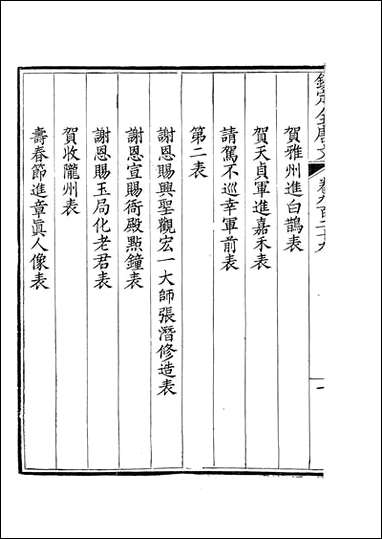 欽定全唐文 卷九百二十九 一
賀雅州進白鵲表
賀天貞軍進嘉禾表
請駕不巡幸軍前表
第二表
謝恩賜興聖觀宏一大師張潛修造表
謝恩宣賜衙殿點鐘表
謝恩賜玉局化老君表
賀收隴州表
壽春節進章眞人像表